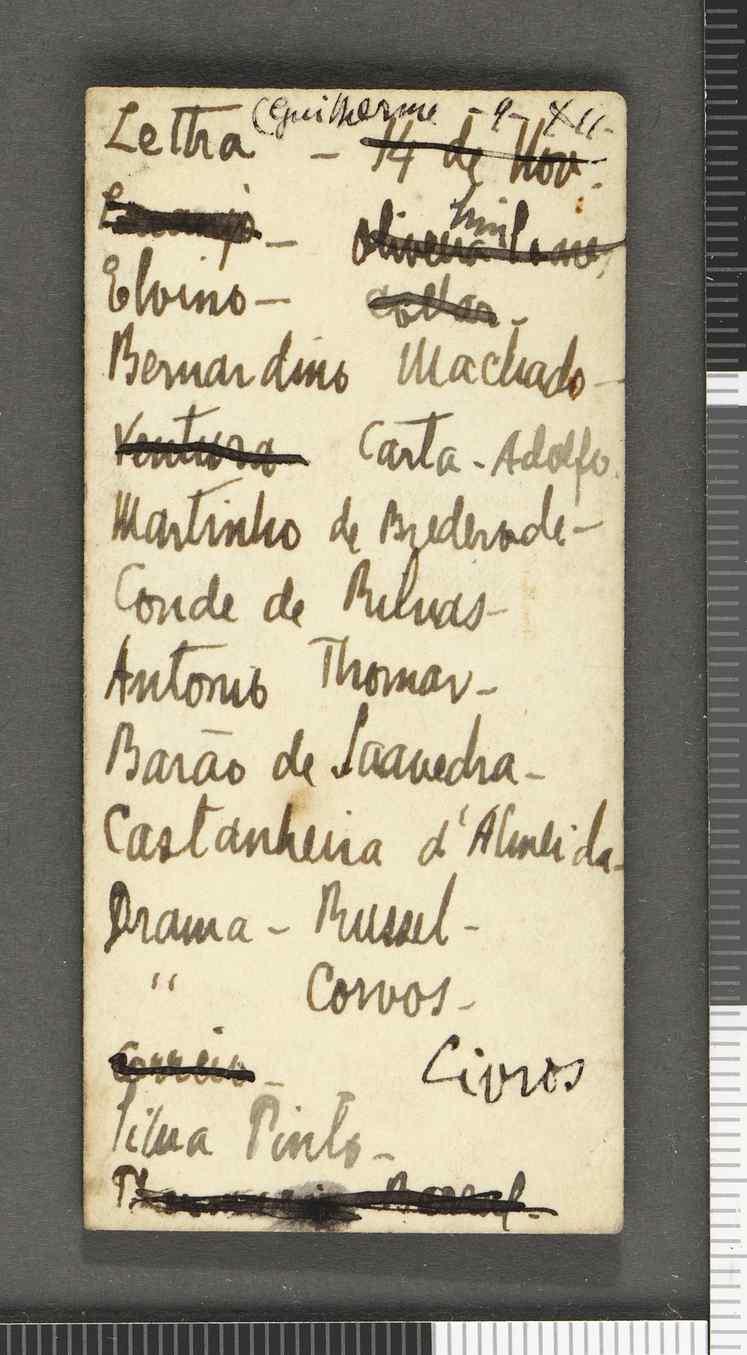 Guilherme - 9 - XII -
Lettra - 14 de Nov.
Oliveira Lima
Elvino - Collar -
Bernardino Machado -
Ventura Carta - Adolfo.
Martinho de Brederode -
Conde de Rilvas -
Antonio Thomar -
Barão de Saavedra -
Castanheira d'Almeida -
Drama - Russel -
" Corvos -
Correio - Livros
Silva Pinto -